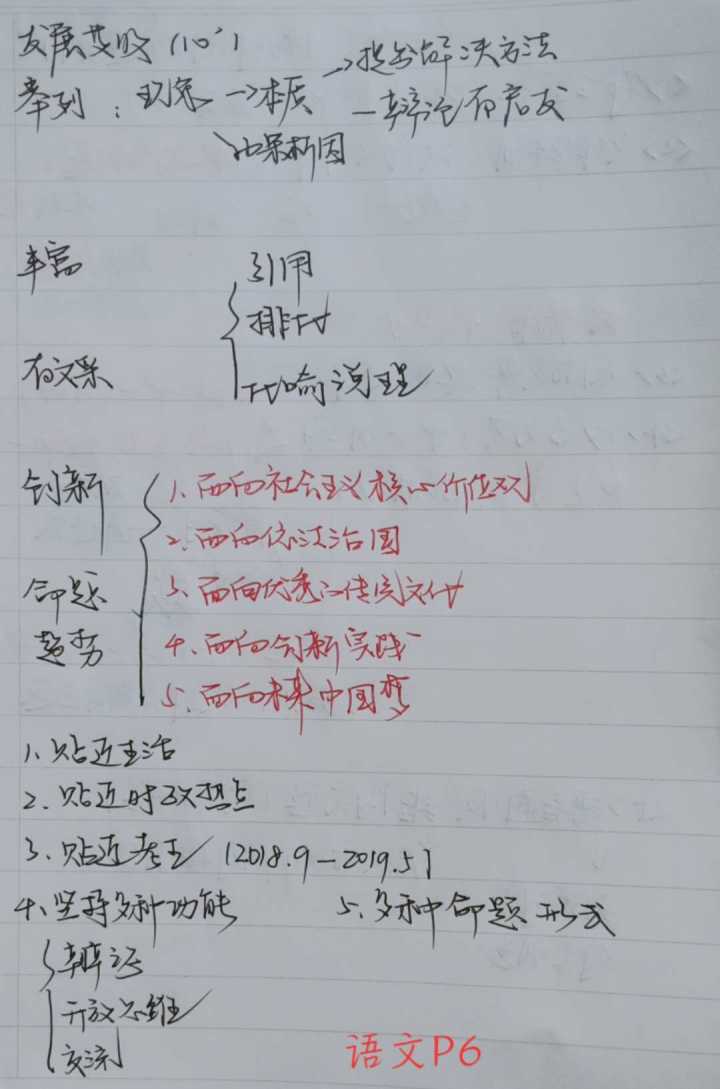 发展等级（10'）
举例：现象→本质 →提出解决方法
—辩论而启发
由果析因
丰富 引用
排比
有文采 比喻说理
创新 1、面向社会主义核心价值观
2、面向依法治国
命题 3、面向优秀传统文化
趋势 4、面向创新实践
5、面向未来中国梦
1、贴近生活
2、贴近时政热点
3、贴近考生（2018.9—2019.5）
4、坚持多种功能 5、多种命题形式
辩证
开放思维
交流
语文P6